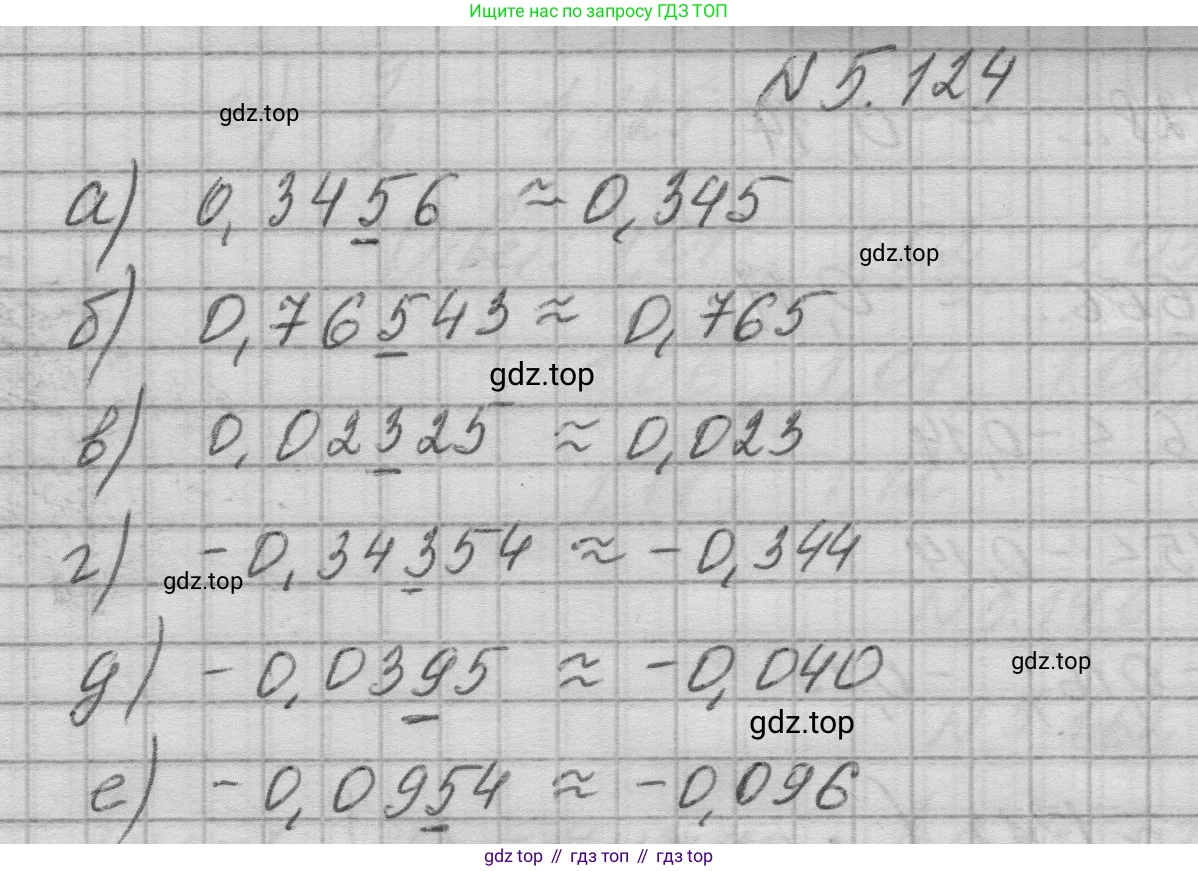 Ищите нас по запросу ГДЗ ТОП
N 5.124
gdz.top
а) 0,3456 ≈ 0,345
gdz.top
б) 0,76543 ≈ 0,765
gdz.top
в) 0,02325 ≈ 0,023
г) -0,34354 ≈ -0,344
gdz.top
д) -0,0395 ≈ -0,040
gdz.top
gdz.top
е) -0,0954 ≈ -0,096
gdz top // гдз топ // гдз top